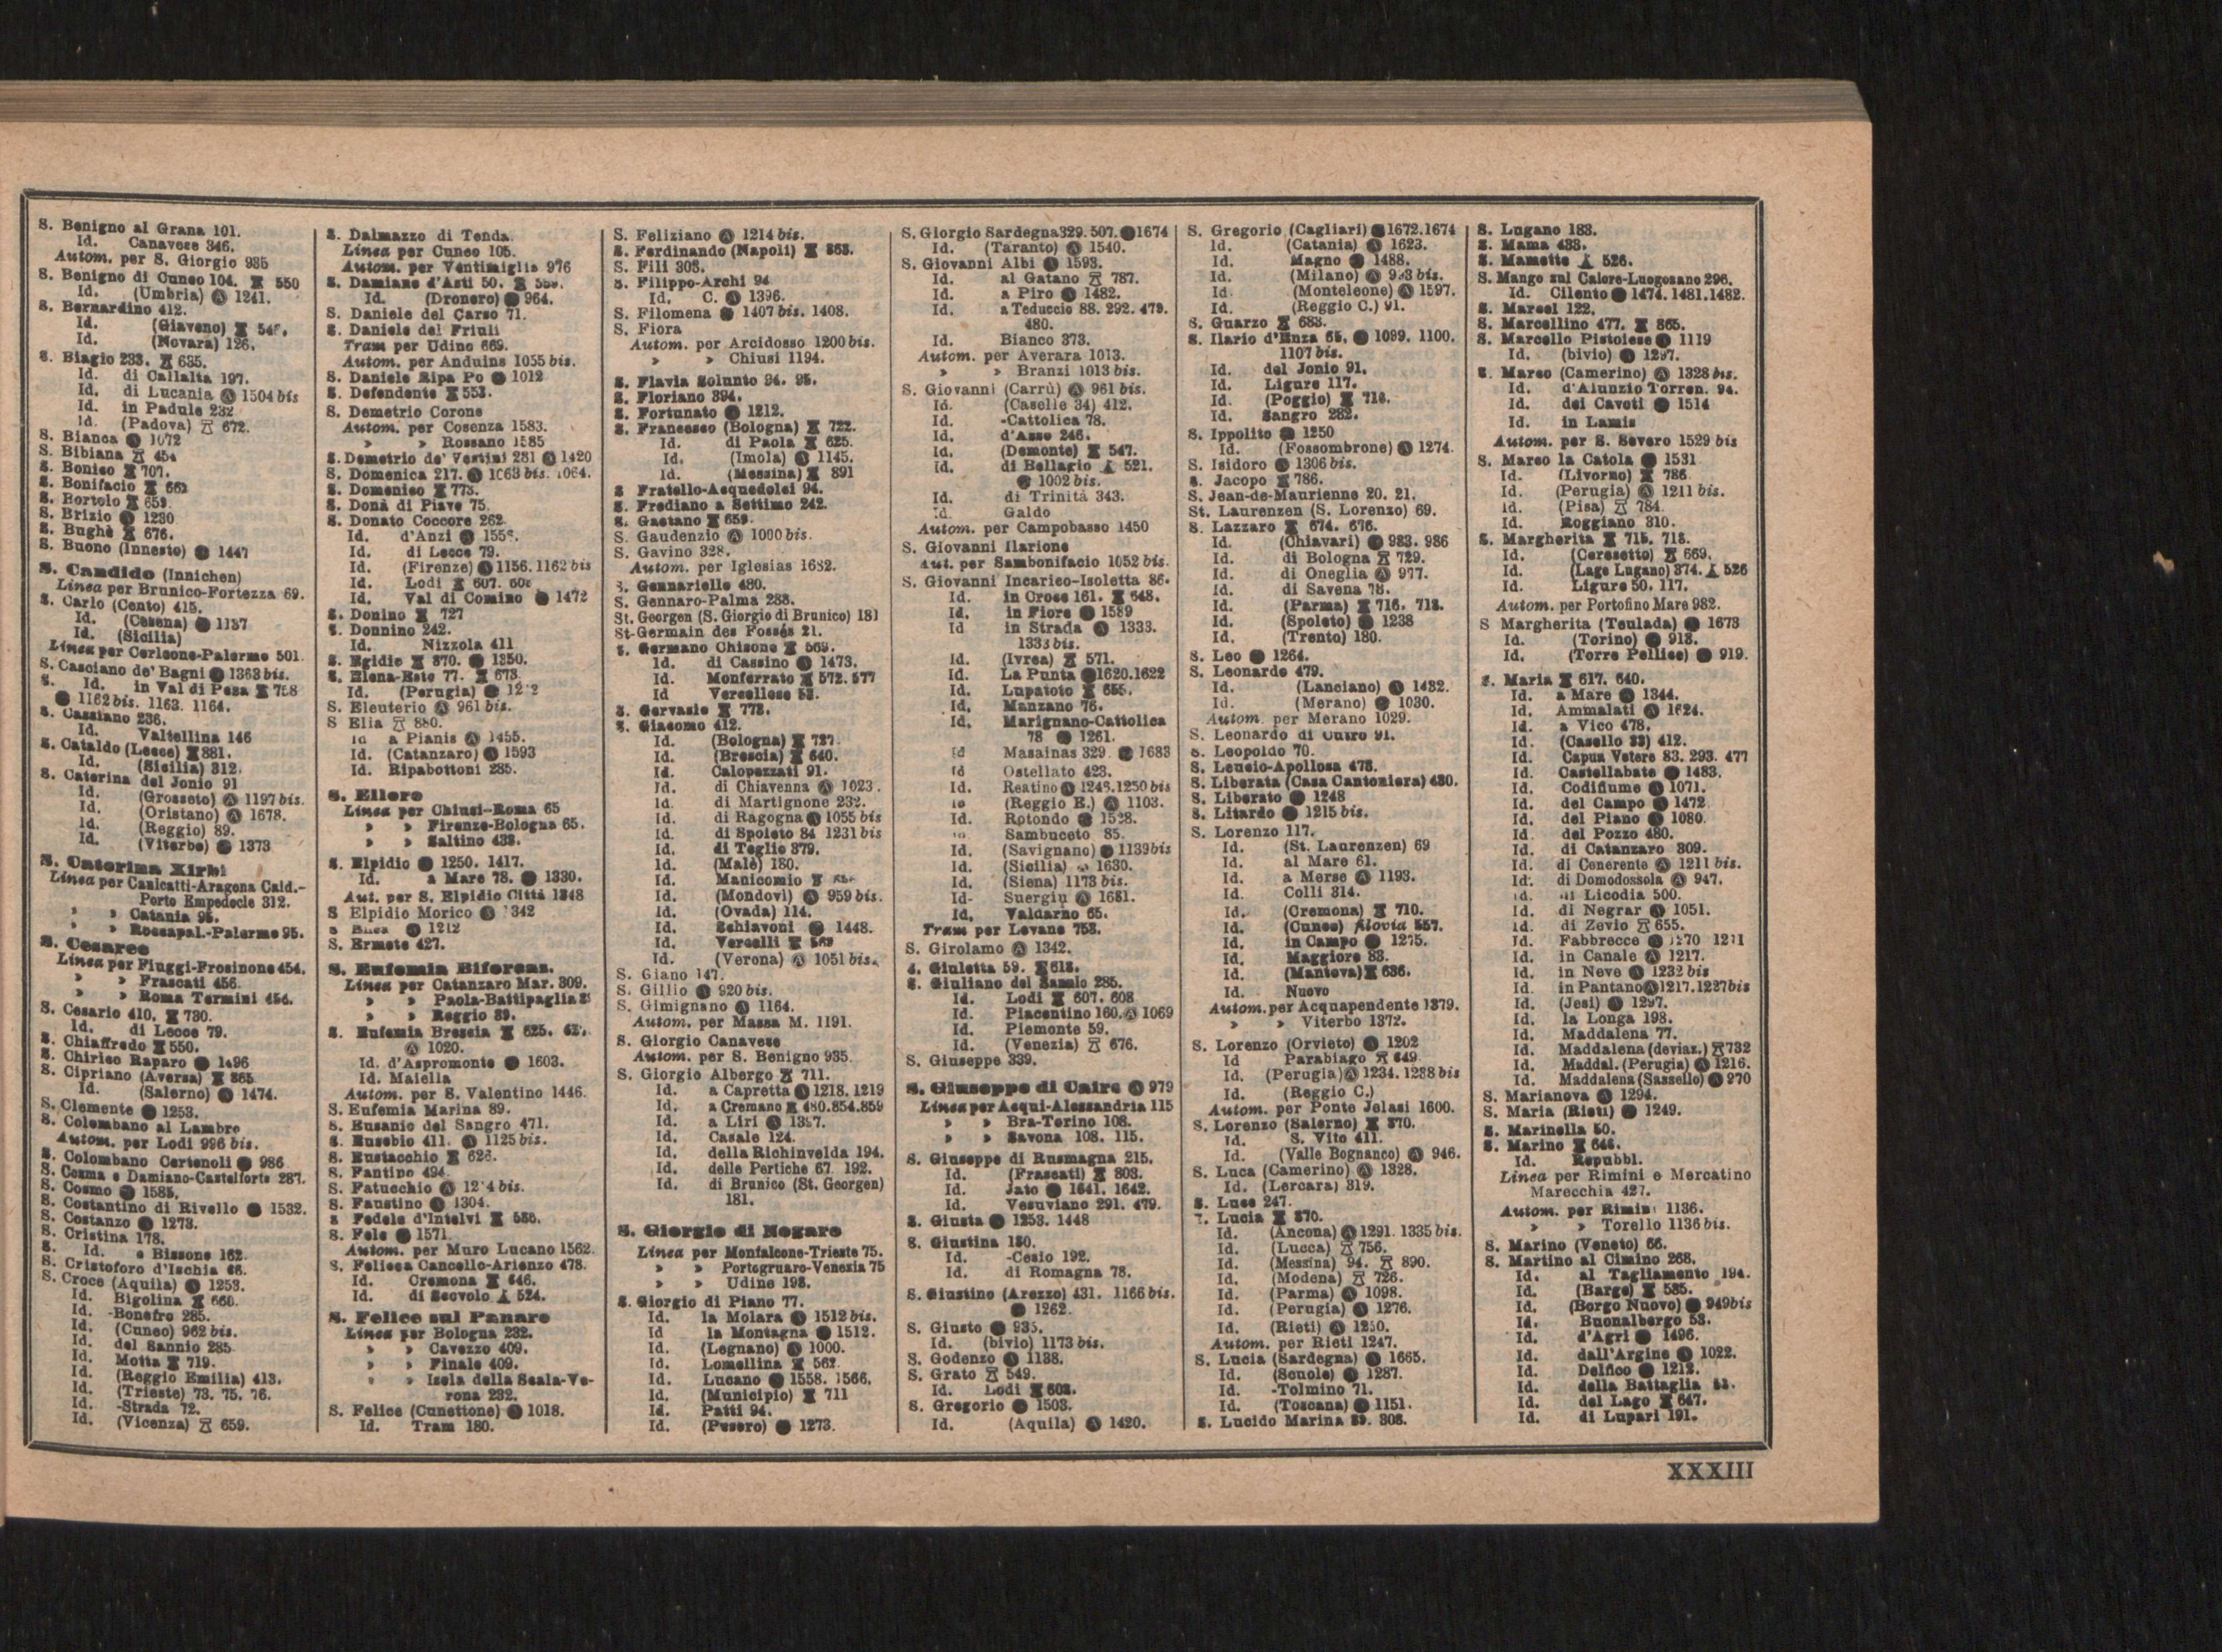 S. Benigno al Grana 101.
Id. Canavese 346.
Autom. per S. Giorgio 935
S. Benigno di Cuneo 104. 550
Id. (Umbria) Ⓐ 1241.
S. Bernardino 412.
Id. (Giaveno)
Id. (Novara) 126.
S. Biagio 233. 635.
Id. di Callalta 197.
Id. di Lucania Ⓐ 1504 bis
Id. in Padule 232
Id. (Padova) 672.
S. Bianca ● 1072
S. Bibiana 454
S. Bonico 707.
S. Bonifacio 662
S. Bortolo 659.
S. Brizio ● 1230
S. Bughè 676.
S. Buono (Innesto) ● 1447
S. Candido (Innichen)
Linea per Brunico-Fortezza 69.
S. Carlo (Cento) 415.
Id. (Cesena) ● 1137
Id. (Sicilia)
Linea per Corleone-Palermo 501.
S. Casciano de' Bagni ● 1363 bis.
S. Id. in Val di Pesa 758
● 1162 bis. 1163. 1164.
S. Cassiano 236.
Id. Valtellina 146
S. Cataldo (Lecce) 881.
Id. (Sicilia) 312.
S. Caterina del Jonio 91
Id. (Grosseto) Ⓐ 1197 bis.
Id. (Oristano) Ⓐ 1678.
Id. (Reggio) 89.
Id. (Viterbo) ● 1373
S. Caterina Xirbi
Linea per Canicatti-Aragona Cald.-
Porto Empedocle 312.
» » Catania 95.
» » Roccapal.-Palermo 95.
S. Cesareo
Linea per Fiuggi-Frosinone 454.
» » Frascati 456.
» » Roma Termini 454.
S. Cesario 410. 730.
Id. di Lecce 79.
S. Chiaffredo 550.
S. Chirico Raparo ● 1496
S. Cipriano (Aversa) 865
Id. (Salerno) ● 1474.
S. Clemente ● 1253.
S. Colombano al Lambro
Autom. per Lodi 996 bis.
S. Colombano Certenoli ● 986
S. Cosma e Damiano-Castelforte 287.
S. Cosmo ● 1585.
S. Costantino di Rivello ● 1532.
S. Costanzo ● 1273.
S. Cristina 178.
S. Id. e Bissone 162.
S. Cristoforo d'Ischia 66.
S. Croce (Aquila) ● 1253.
Id. Bigolina 660.
Id. -Bonefro 285.
Id. (Cuneo) 962 bis.
Id. del Sannio 285
Id. Motta 719.
Id. (Reggio Emilia) 413.
Id. (Trieste) 73. 75. 76.
Id. -Strada 72.
Id. (Vicenza) 659.
S. Dalmazzo di Tenda
Linea per Cuneo 105.
Autom. per Ventimiglia 976
S. Damiano d'Asti 50.
Id. (Dronero) ● 964.
S. Daniele del Carso 71.
S. Daniele del Friuli
Tram per Udine 669.
Autom. per Anduins 1055 bis.
S. Daniele Ripa Po ● 1012
S. Defendente 553.
S. Demetrio Corone
Autom. per Cosenza 1583.
» » Rossano 1585
S. Demetrio de' Vestini 281 Ⓐ 1420
S. Domenica 217. Ⓐ 1063 bis. 1064.
S. Domenico 773.
S. Donà di Piave 75.
S. Donato Coccore 262
Id. d'Anzi ●
Id. di Lecce 79.
Id. (Firenze) ● 1156. 1162 bis
Id. Lodi 607. 608
Id. Val di Comino ● 1472
S. Donino 727
S. Donnino 242.
Id. Nizzola 411
S. Egidio 870. ● 1350.
S. Elena-Este 77. 673.
Id. (Perugia) ●
S. Eleuterio Ⓐ 961 bis.
S Elia 880.
Id a Pianis Ⓐ 1455.
Id. (Catanzaro) ● 1593
Id. Ripabottoni 285.
S. Ellero
Linea per Chiusi-Roma 65
» » Firenze-Bologna 65.
» » Saltino 433.
S. Elpidio ● 1250. 1417.
Id. a Mare 78. ● 1330.
Aut. per S. Elpidio Città 1348
S Elpidio Morico Ⓐ 1342
● 1212
S. Ermete 427.
S. Eufemia Biforcaz.
Linea per Catanzaro Mar. 309.
» » Paola-Battipaglia
» » Reggio 89.
S. Eufemia Brescia 625.
Ⓐ 1020.
Id. d'Aspromonte ● 1603.
Id. Maiella
Autom. per S. Valentino 1446.
S. Eufemia Marina 89.
S. Eusanio del Sangro 471.
S. Eusebio 411. Ⓐ 1125 bis.
S. Eustacchio 626.
S. Fantino 494
S. Fatucchio Ⓐ 1214 bis.
S. Faustino ● 1304.
S Fedele d'Intelvi 585.
S. Fele ● 1571.
Autom. per Muro Lucano 1562.
S. Felice a Cancello-Arienzo 478.
Id. Cremona 646.
Id. di Scovolo 524.
S. Felice sul Panaro
Linea per Bologna 232.
» » Cavezzo 409.
» » Finale 409.
» » Isola della Scala-Ve-
rona 232.
S. Felice (Cunettone) ● 1018.
Id. Tram 180.
S. Feliziano Ⓐ 1214 bis.
S. Ferdinando (Napoli) 863.
S. Fili 308.
S. Filippo-Archi 94
Id. C. Ⓐ 1396.
S. Filomena ● 1407 bis. 1408.
S. Fiora
Autom. per Arcidosso 1200 bis.
» » Chiusi 1194.
S. Flavia Solunto 94. 95.
S. Floriano 394.
S. Fortunato ● 1212.
S. Francesco (Bologna) 722.
Id. di Paola 625.
Id. (Imola) Ⓐ 1145.
Id. (Messina) 891
S Fratello-Acquedolci 94.
S. Frediano a Settimo 242.
S. Gaetano 659.
S. Gaudenzio Ⓐ 1000 bis.
S. Gavino 328.
Autom. per Iglesias 1682.
S. Gennariello 480.
S. Gennaro-Palma 288.
St. Georgen (S. Giorgio di Brunico) 181
St-Germain des Fossés 21.
S. Germano Chisone 569.
Id. di Cassino ● 1473.
Id. Monferrato 572. 577
Id Vercellese 53.
S. Gervasio 778.
S. Giacomo 412.
Id. (Bologna) 727.
Id. (Brescia) 640.
Id. Calopezzati 91.
Id. di Chiavenna Ⓐ 1023.
Id. di Martignone 232.
Id. di Ragogna ● 1055 bis
Id. di Spoleto 84 1231 bis
Id. di Teglie 379.
Id. (Malè) 180.
Id. Manicomio
Id. (Mondovì) Ⓐ 959 bis.
Id. (Ovada) 114.
Id. Schiavoni ● 1448.
Id. Vercelli 569
Id. (Verona) Ⓐ 1051 bis.
S. Giano 147.
S. Gillio ● 920 bis.
S. Gimignano Ⓐ 1164.
Autom. per Massa M. 1191.
S. Giorgio Canavese
Autom. per S. Benigno 935.
S. Giorgio Albergo 711.
Id. a Capretta ● 1218. 1219
Id. a Cremano 480.854.859
Id. a Liri Ⓐ 1357.
Id. Casale 124.
Id. della Richinvelda 194.
Id. delle Pertiche 67. 192.
Id. di Brunico (St. Georgen)
181.
S. Giorgio di Nogaro
Linea per Monfalcone-Trieste 75.
» » Portogruaro-Venezia 75
» » Udine 198.
S. Giorgio di Piano 77.
Id. la Molara ● 1512 bis.
Id la Montagna ● 1512.
Id. (Legnano) Ⓐ 1000.
Id. Lomellina 562
Id. Lucano ● 1558. 1566.
Id. (Municipio) 711
Id. Patti 94.
Id. (Pesaro) ● 1273.
S. Giorgio Sardegna 329. 507. ● 1674
Id. (Taranto) Ⓐ 1540.
S. Giovanni Albi ● 1593.
Id. al Gatano 787.
Id. a Piro ● 1482.
Id. a Teduccio 88. 292. 479.
480.
Id. Bianco 373.
Autom. per Averara 1013.
» » Branzi 1013 bis.
S. Giovanni (Carrù) Ⓐ 961 bis.
Id. (Caselle 34) 412.
Id. -Cattolica 78.
Id. d'Asso 246.
Id. (Demonte) 547.
Id. di Bellagio 521.
● 1002 bis.
Id. di Trinità 343.
Id. Galdo
Autom. per Campobasso 1450
S. Giovanni Ilarione
Aut. per Sambonifacio 1052 bis.
S. Giovanni Incarico-Isoletta 86.
Id. in Croce 161. 648.
Id. in Fiore ● 1589
Id in Strada Ⓐ 1333.
1333 bis.
Id. (Ivrea) 571.
Id. La Punta ● 1620.1622
Id. Lupatoto 655.
Id. Manzano 76.
Id. Marignano-Cattolica
78 ● 1261.
Id Masainas 329. ● 1683
Id Ostellato 423.
Id. Reatino Ⓐ 1246.1250 bis
Id (Reggio E.) Ⓐ 1103.
Id. Rotondo ● 1528.
Sambuceto 85.
Id. (Savignano) ● 1139 bis
Id. (Sicilia) 1630.
Id. (Siena) 1173 bis.
Id- Suergiu Ⓐ 1681.
Id. Valdarno 65.
Tram per Levane 758.
S. Girolamo Ⓐ 1342.
S. Giuletta 59. 618.
S. Giuliano del Sannio 285.
Id. Lodi 607. 608
Id. Piacentino 160. Ⓐ 1069
Id. Piemonte 59.
Id. (Venezia) 676.
S. Giuseppe 339.
S. Giuseppe di Cairo Ⓐ 979
Linea per Acqui-Alessandria 115
» » Bra-Torino 108.
» » Savona 108. 115.
S. Giuseppe di Rusmagna 215.
Id. (Frascati) 803.
Id. Jato ● 1641. 1642.
Id. Vesuviano 291. 479.
S. Giusta ● 1253. 1448
S. Giustina 180.
Id. -Cesio 192.
Id. di Romagna 78.
S. Giustino (Arezzo) 431. 1166 bis.
● 1262.
S. Giusto ● 935.
Id. (bivio) 1173 bis.
S. Godenzo Ⓐ 1138.
S. Grato 549.
Id. Lodi 608.
S. Gregorio ● 1503.
Id. (Aquila) Ⓐ 1420.
S. Gregorio (Cagliari) ● 1672.1674
Id. (Catania) Ⓐ 1623.
Id. Magno ● 1488.
Id. (Milano) Ⓐ 993 bis.
Id. (Monteleone) Ⓐ 1597.
Id. (Reggio C.) 91.
S. Guarzo 683.
S. Ilario d'Enza 65. ● 1099. 1100.
1107 bis.
Id. del Jonio 91.
Id. Ligure 117.
Id. (Poggio) 718.
Id. Sangro 282.
S. Ippolito ● 1250
Id. (Fossombrone) Ⓐ 1274.
S. Isidoro ● 1306 bis.
S. Jacopo 786.
S. Jean-de-Maurienne 20. 21.
St. Laurenzen (S. Lorenzo) 69.
S. Lazzaro 674. 676.
Id. (Chiavari) ● 983. 986
Id. di Bologna 729.
Id. di Oneglia Ⓐ 977.
Id. di Savena 78.
Id. (Parma) 716. 718.
Id. (Spoleto) ● 1238
Id. (Trento) 180.
S. Leo ● 1264.
S. Leonardo 479.
Id. (Lanciano) Ⓐ 1432.
Id. (Merano) ● 1030.
Autom. per Merano 1029.
S. Leonardo di Cutro 91.
S. Leopoldo 70.
S. Leucio-Apollosa 478.
S. Liberata (Casa Cantoniera) 480.
S. Liberato ● 1248
S. Litardo ● 1215 bis.
S. Lorenzo 117.
Id. (St. Laurenzen) 69
Id. al Mare 61.
Id. a Merse Ⓐ 1193.
Id. Colli 314.
Id. (Cremona) 710.
Id. (Cuneo) filovia 557.
Id. in Campo ● 1275.
Id. Maggiore 83.
Id. (Mantova) 636.
Id. Nuovo
Autom. per Acquapendente 1379.
» » Viterbo 1372.
S. Lorenzo (Orvieto) ● 1202
Id Parabiago 649
Id. (Perugia) Ⓐ 1234. 1238 bis
Id. (Reggio C.)
Autom. per Ponte Jelasi 1600.
S. Lorenzo (Salerno) 870.
Id. S. Vito 411.
Id. (Valle Bognanco) Ⓐ 946.
S. Luca (Camerino) Ⓐ 1328.
Id. (Lercara) 319.
S. Luce 247.
S. Lucia 870.
Id. (Ancona) Ⓐ 1291. 1335 bis.
Id. (Lucca) 756.
Id. (Messina) 94. 890.
Id. (Modena) 726.
Id. (Parma) Ⓐ 1098.
Id. (Perugia) Ⓐ 1276.
Id. (Rieti) Ⓐ 1250.
Autom. per Rieti 1247.
S. Lucia (Sardegna) ● 1665.
Id. (Scuole) ● 1287.
Id. -Tolmino 71.
Id. (Toscana) ● 1151.
S. Lucido Marina 89. 308.
S. Lugano 183.
S. Mama 433.
S. Mamette 526.
S. Mango sul Calore-Luogosano 296.
Id. Cilento ● 1474. 1481.1482.
S. Marcel 122.
S. Marcellino 477. 865.
S. Marcello Pistoiese ● 1119
Id. (bivio) ● 1297.
S. Marco (Camerino) Ⓐ 1328 bis.
Id. d'Alunzio Torren. 94.
Id. dei Cavoti ● 1514
Id. in Lamis
Autom. per S. Severo 1529 bis
S. Marco la Catola ● 1531
Id. (Livorno) 786
Id. (Perugia) Ⓐ 1211 bis.
Id. (Pisa) 784.
Id. Roggiano 310.
S. Margherita 715. 718.
Id. (Ceresetto) 669.
Id. (Lago Lugano) 374. 526
Id. Ligure 50. 117.
Autom. per Portofino Mare 982.
S Margherita (Teulada) ● 1673
Id. (Torino) ● 913.
Id. (Torre Pellice) ● 919.
S. Maria 617. 640.
Id. a Mare ● 1344.
Id. Ammalati Ⓐ 1624.
Id. a Vico 478.
Id. (Casello 33) 412.
Id. Capua Vetere 83. 293. 477
Id. Castellabate ● 1483.
Id. Codifiume Ⓐ 1071.
Id. del Campo ● 1472
Id. del Piano ● 1080.
Id. del Pozzo 480.
Id. di Catanzaro 309.
Id. di Cenerente Ⓐ 1211 bis.
Id. di Domodossola Ⓐ 947.
Id. di Licodia 500.
Id. di Negrar Ⓐ 1051.
Id. di Zevio 655.
Id. Fabbrecce ● 1270 1271
Id. in Canale Ⓐ 1217.
Id. in Neve Ⓐ 1232 bis
Id. in Pantano Ⓐ 1217.1227 bis
Id. (Jesi) Ⓐ 1297.
Id. la Longa 198.
Id. Maddalena 77.
Id. Maddalena (deviaz.) 732
Id. Maddal. (Perugia) Ⓐ 1216.
Id. Maddalena (Sassello) Ⓐ 970
S. Marianova Ⓐ 1294.
S. Maria (Rieti) ● 1249.
S. Marinella 50.
S. Marino 646.
Id. Repubbl.
Linea per Rimini e Mercatino
Marecchia 427.
Autom. per Rimini 1136.
» » Torello 1136 bis.
S. Marino (Veneto) 66.
S. Martino al Cimino 268.
Id. al Tagliamento 194.
Id. (Barge) 585.
Id. (Borgo Nuovo) ● 949 bis
Id. Buonalbergo 53.
Id. d'Agri ● 1496.
Id. dall'Argine Ⓐ 1022.
Id. Delfico ● 1212.
Id. della Battaglia
Id. del Lago 647.
Id. di Lupari 191.
XXXIII